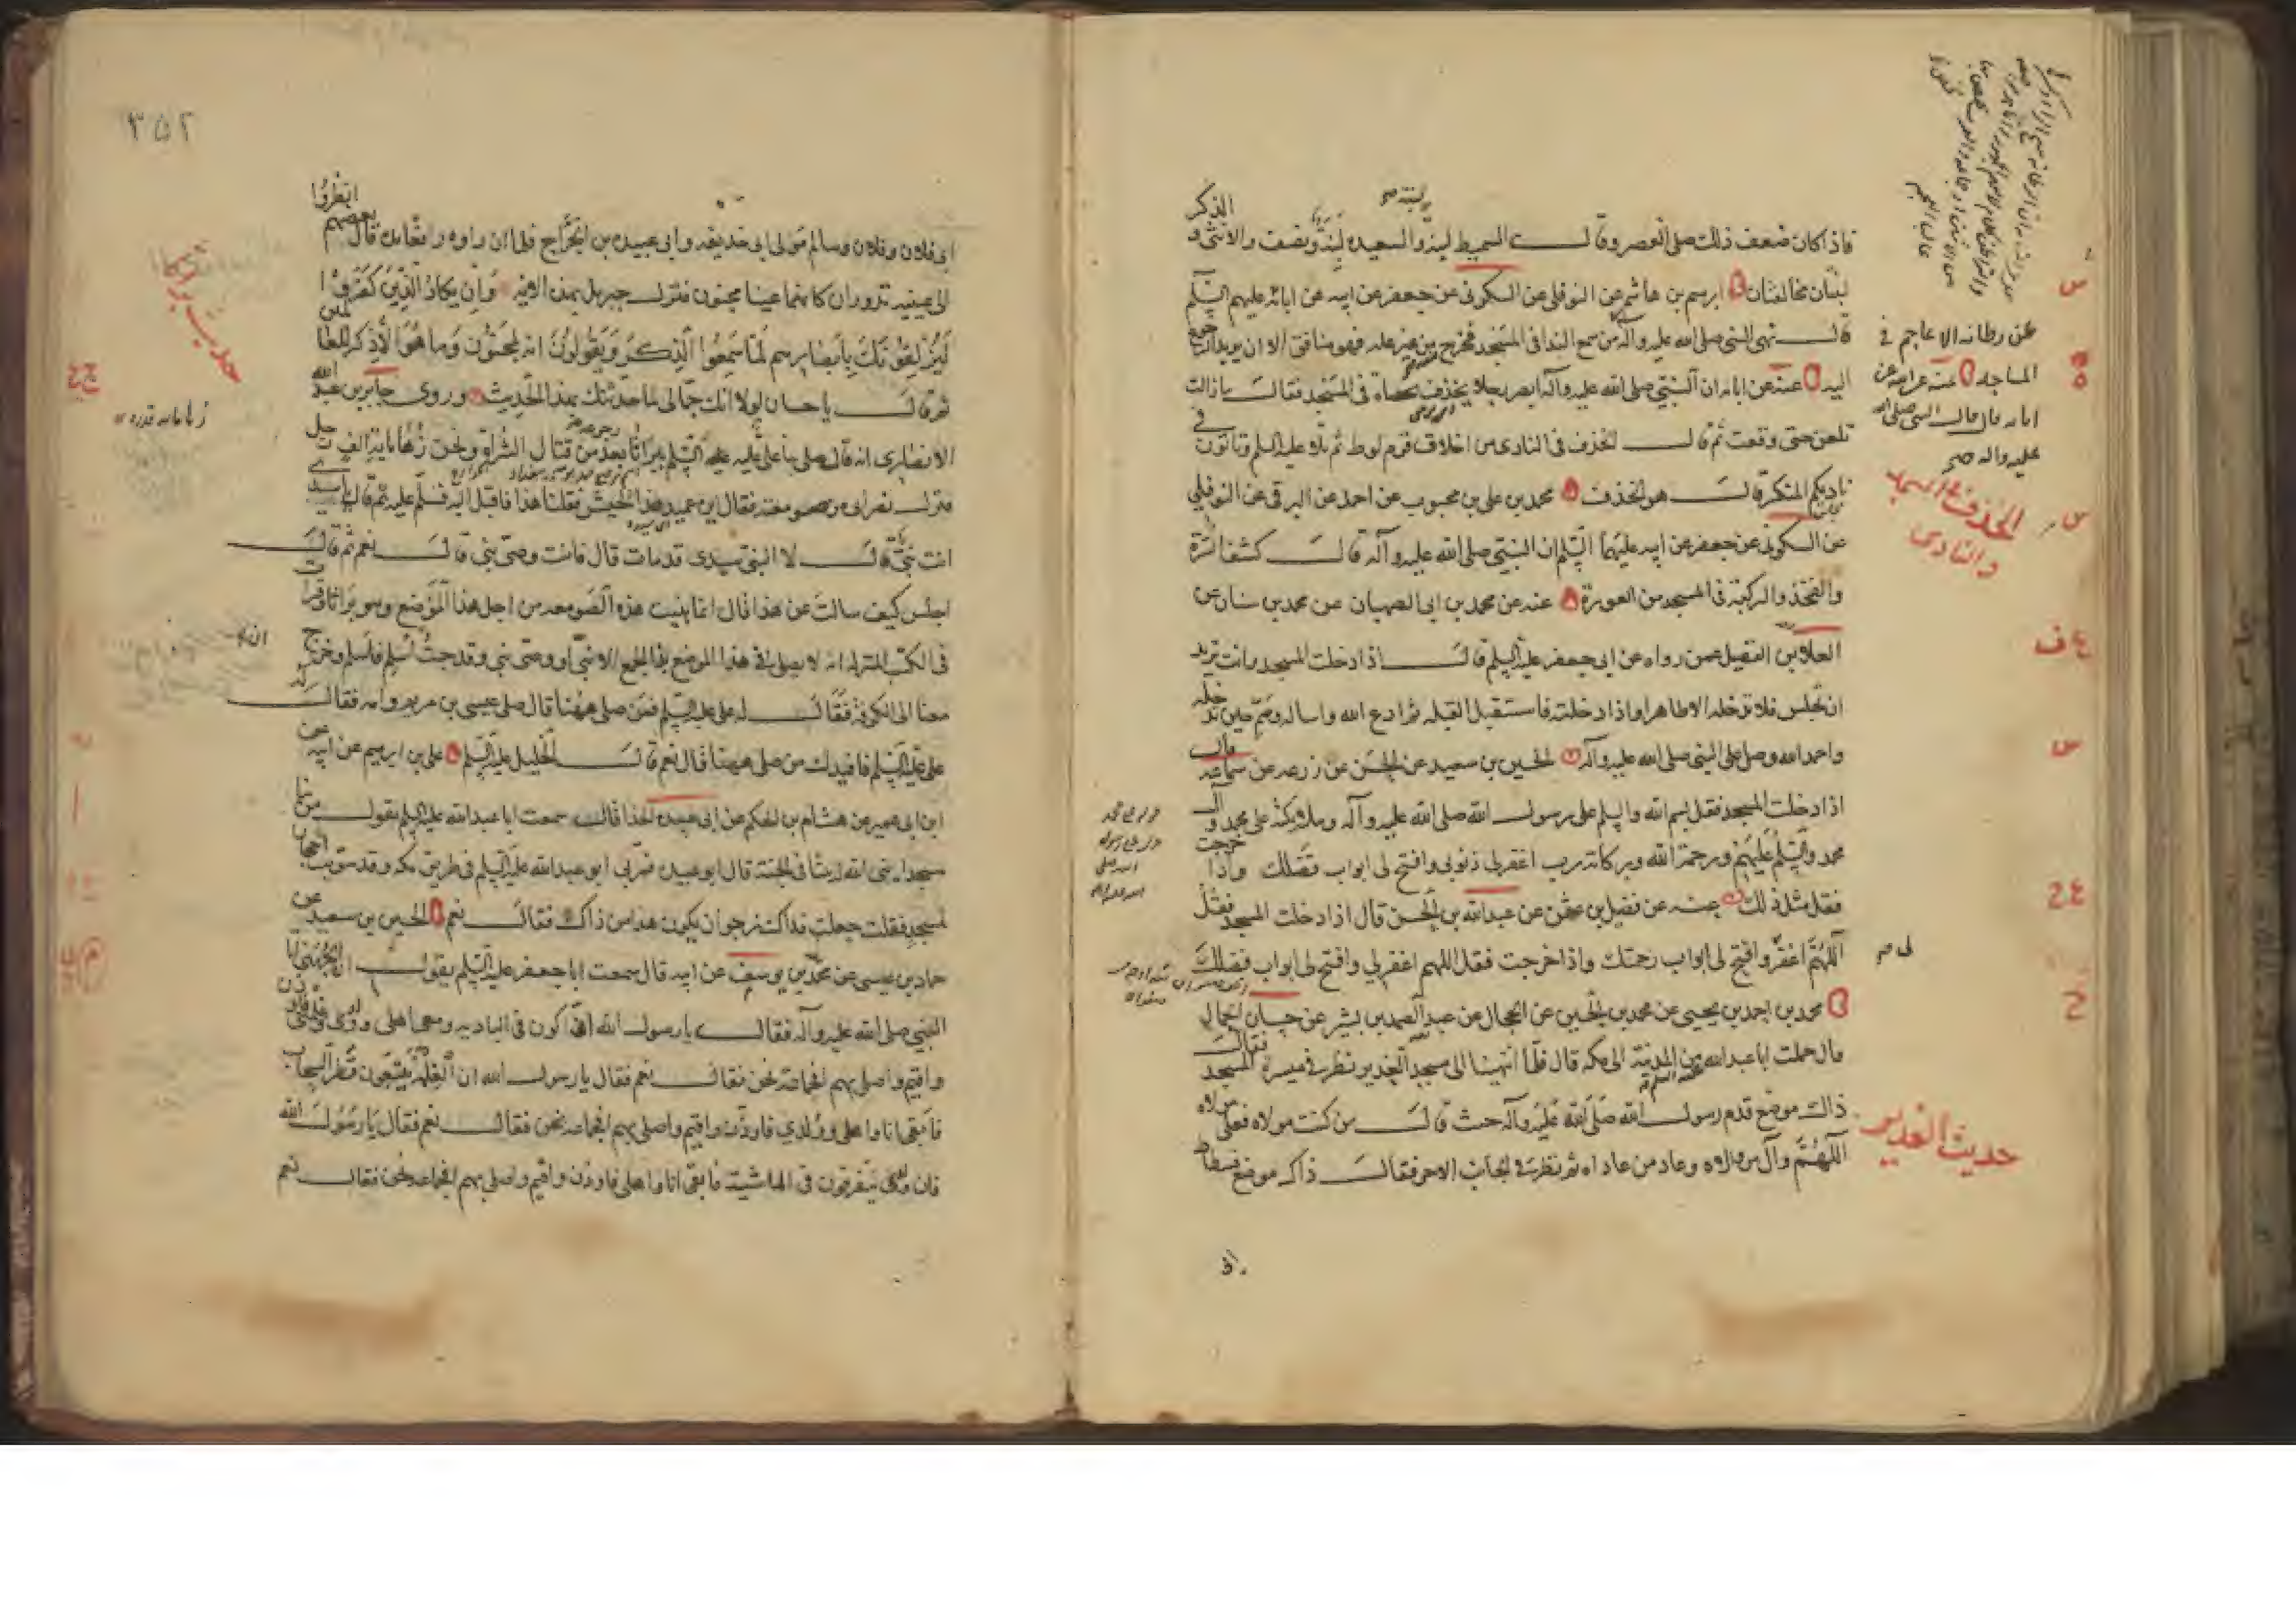 فاذا كان ضعف ذلك صلى العصر وقال السميط لبنة والسعيدة لبنة ونصف والانثى و الذكر
لبنتان مخالفتان ابرهيم بن هاشم عن النوفلي عن السكوني عن جعفر عن ابيه عن ابائه عليهم السلم
قال نهى النبي صلى الله عليه وآله من سمع الندا في المسجد فخرج من غير علة فهو منافق الا ان يريد الرجوع
اليه عنه عن ابائه ان النبي صلى الله عليه وآله ابصر رجلا يخذف بحصاة في المسجد فقال ما زالت
تلعن حتى وقعت ثم قال الخذف في النادي من اخلاق قوم لوط ثم تلا عليه السلم وتاتون في
ناديكم المنكر قال هو الخذف محمد بن علي بن محبوب عن احمد عن البرقي عن النوفلي
عن السكوني عن جعفر عن ابيه عليهما السلم ان النبي صلى الله عليه وآله قال كشف السرة
والفخذ والركبة في المسجد من العورة عنه عن محمد بن ابي الصهبان عن محمد بن سنان عن
العلا بن الفضيل عمن رواه عن ابي جعفر عليه السلم قال اذا دخلت المسجد وانت تريد
ان تجلس فلا تدخله الا طاهرا واذا دخلته فاستقبل القبله ثم ادع الله واساله وسم حين تدخله
واحمد الله وصل على النبي صلى الله عليه وآله الحسين بن سعيد عن الحسن عن زرعه عن سماعه قال
اذا دخلت المسجد فقل بسم الله والسلم على رسول الله صلى الله عليه وآله وملائكته على محمد وآل
محمد والسلم عليهم ورحمة الله وبركاته رب اغفر لي ذنوبي وافتح لي ابواب فضلك واذا خرجت
فقل مثل ذلك عنه عن فضيل بن عثمن عن عبد الله بن الحسن قال اذا دخلت المسجد فقل
اللهم اغفر وافتح لي ابواب رحمتك واذا خرجت فقل اللهم اغفر لي وافتح لي ابواب فضلك
محمد بن احمد بن يحيى عن محمد بن الحسين عن الحجال عن عبد الصمد بن بشير عن حسان الجمال
قال حملت ابا عبد الله من المدينة الى مكه قال فلما انتهينا الى مسجد الغدير نظر في ميسرة المسجد فقال
ذاك موضع قدم رسول الله صلى الله عليه وآله حيث قال من كنت مولاه فعلي مولاه
اللهم وال من والاه وعاد من عاداه ثم نظر في الجانب الاخر فقال ذاك موضع فسطاط
عن رطانه الاعاجم في
المساجد
ابائه قال قال النبي صلى الله
عليه وآله صح
الخذف في المسجد
والنادي
حديث الغدير
٣٥٢
ابي فلان وفلان وسالم مولى ابي حذيفه وابي عبيده بن الجراح فلما ان راوه رافعا يده قال بعضهم انظروا
الى عينيه تدوران كانهما عينا مجنون فنزل جبريل بهذه الايه وان يكاد الذين كفروا
ليزلقونك بابصارهم لما سمعوا الذكر ويقولون انه لمجنون وما هو الا ذكر للعالمين
ثم قال يا حسان لولا انك جمالي لما حدثتك بهذا الحديث وروى جابر بن عبد الله
الانصاري انه قال صلى بنا علي عليه السلم ببراثا بعد رجوعه من قتال الشراة ونحن زهاء مائة الف رجل
فنزل نصراني من صومعته فقال اين عميد هذا الجيش فقلنا هذا فاقبل اليه فسلم عليه ثم قال يا سيدي
انت نبي قال لا النبي سيدي قد مات قال فانت وصي نبي قال نعم ثم قال
اجلس كيف سالت عن هذا قال انما بنيت هذه الصومعه من اجل هذا الموضع وهو براثا وقرات
في الكتب المنزله انه لا يصلي في هذا الموضع بهذا الجمع الا نبي او وصي نبي وقد جئت اسلم فاسلم وخرج
معنا الى الكوفة فقال له علي عليه السلم فمن صلى ههنا قال صلى عيسى بن مريم وامه فقال له
علي عليه السلم فافيدك من صلى ههنا قال نعم قال الخليل عليه السلم علي بن ابرهيم عن ابيه عن
ابن ابي عمير عن هشام بن الحكم عن ابي عبيده الحذا قال سمعت ابا عبد الله عليه السلم يقول من بنا
مسجدا بنى الله له بيتا في الجنة قال ابو عبيده فمر بي ابو عبد الله عليه السلم في طريق مكه وقد سويت احجار
لمسجد فقلت جعلت فداك نرجوا ان يكون هذا من ذاك فقال نعم الحسين بن سعيد عن
حماد بن عيسى عن محمد بن يوسف عن ابيه قال سمعت ابا جعفر عليه السلم يقول ان الجهني اتا
النبي صلى الله عليه وآله فقال يا رسول الله اني اكون في الباديه ومعي اهلي وولدي وغلمتي فاوذن
واقيم واصلي بهم افجماعة نحن فقال نعم فقال يا رسول الله ان الغلمة يتبعون قطر السحاب
فابقى انا واهلي وولدي فاوذن واقيم واصلي بهم افجماعه نحن فقال نعم فقال يا رسول الله
فان ولدي يتفرقون في الماشية فابقى انا واهلي فاوذن واقيم واصلي بهم افجماعه نحن فقال نعم
حديث براثا